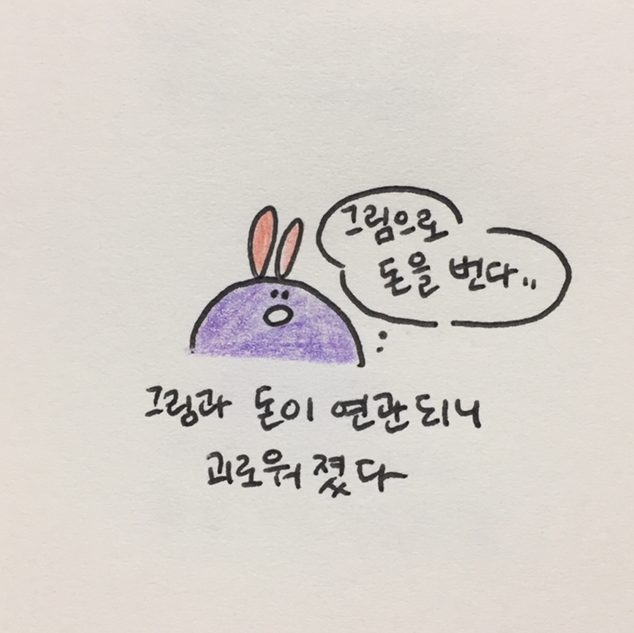 그림으로
돈을 번다..
그림과 돈이 연관되니
괴로워졌다